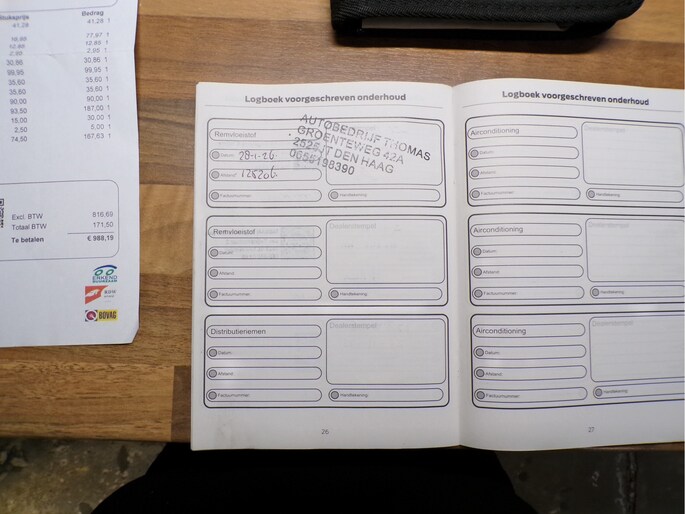 Stuksprijs Bedrag
41,28 41,28 1
77,97 1
12,85 12,85 1
2,95 2,95 1
30,86 30,86 1
99,95 99,95 1
35,60 35,60 1
35,60 35,60 1
90,00 90,00 1
93,50 187,00 1
15,00 30,00 1
2,50 5,00 1
74,50 167,63 1
Excl. BTW 816,69
Totaal BTW 171,50
Te betalen € 988,19
ERKEND
DUURZAAM
BOVAG
Logboek voorgeschreven onderhoud
Remvloeistof
Datum:
Afstand: 128206
Factuurnummer:
Handtekening:
AUTOBEDRIJF THOMAS
GROENTEWEG 42A
2525JT DEN HAAG
Remvloeistof
Dealerstempel
Datum:
Afstand:
Factuurnummer:
Handtekening:
Distributieriemen
Dealerstempel
Datum:
Afstand:
Factuurnummer:
Handtekening:
26
Logboek voorgeschreven onderhoud
Airconditioning
Dealerstempel
Datum:
Afstand:
Factuurnummer:
Handtekening:
Airconditioning
Dealerstempel
Datum:
Afstand:
Factuurnummer:
Handtekening:
Airconditioning
Dealerstempel
Datum:
Afstand:
Factuurnummer:
Handtekening:
27